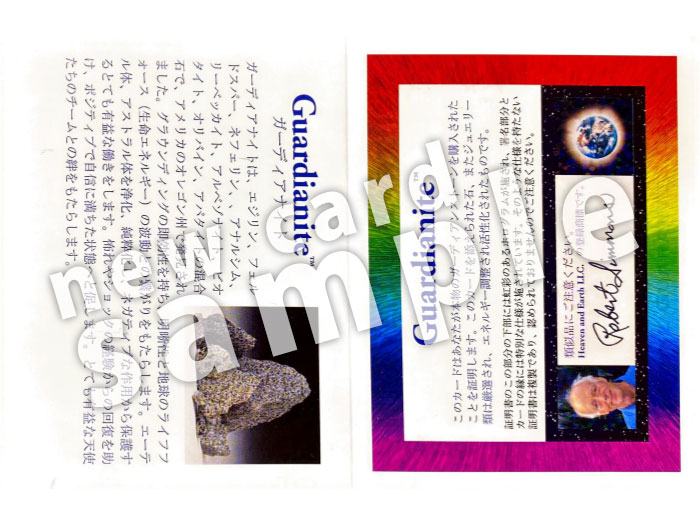 Guardianite™
ガーディアナイト
ガーディアナイトは、エジリン、フェル
ドスパー、ネフェリン、アナルシム、
リーベッカイト、アルベゾナイト、ビオ
タイト、オリバイン、アパタイトの混合
石で、アメリカのオレゴン州で発見され
ました。グラウンディングの即効性を持ち、明晰性と地球のライフフ
ォース（生命エネルギー）の波動との繋がりをもたらします。エーテ
ル体、アストラル体を浄化、純粋化し、ネガティブな作用から保護す
るとても有益な働きをします。怖れやショックの経験からの回復を助
け、ポジティブで自信に満ちた状態へと促します。とても有益な天使
たちのチームとの絆をもたらします。
Guardianite™
このカードはあなたが本物のガーディアンストーンを購入された
ことを証明します。このカードを添えられた石、またジュエリー
類は厳選され、エネルギー調整され活性化されたものです。
証明書のこの部分の下部には虹彩のあるホログラムが施され、署名部分と
カードの縁には特別な仕様が施されています。そのような仕様を持たない
証明書は複製であり、認められておりませんのでご注意ください。
類似品にご注意ください。
Heaven and Earth LLC. の登録商標です。
Robert Simmons
neo card
sample